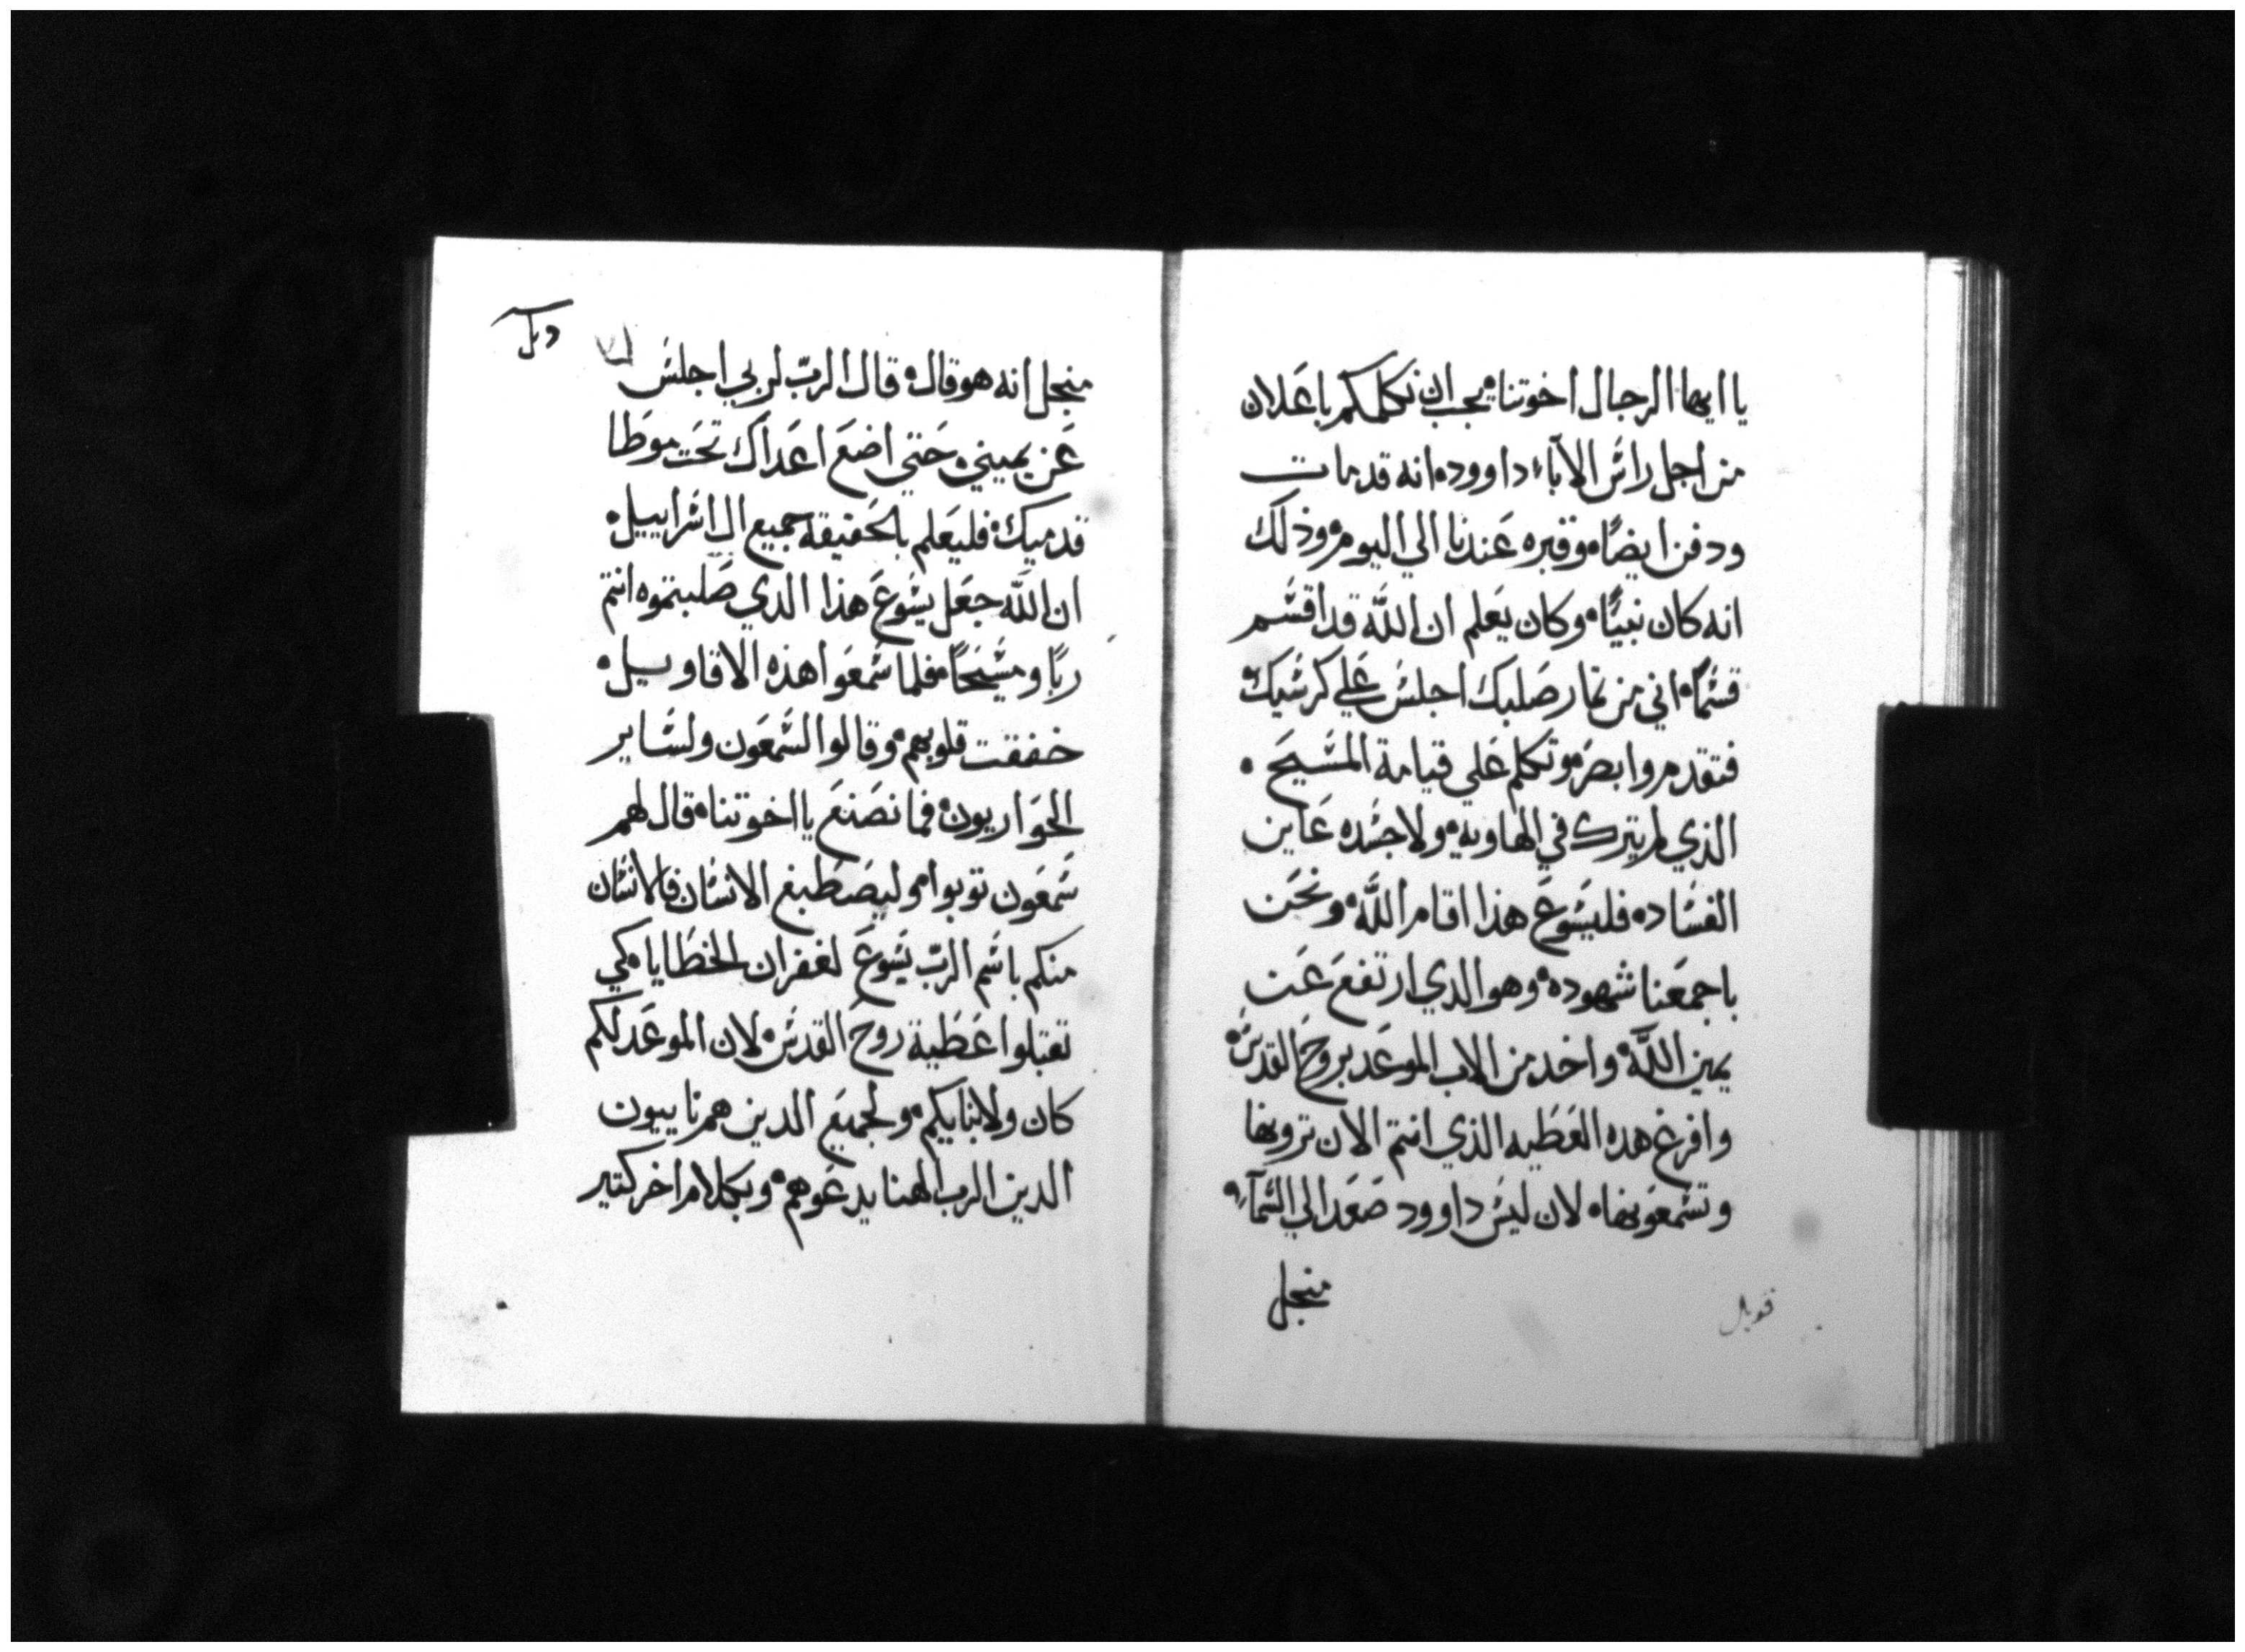 يا ايها الرجال اخوتنا۰ يجب ان نكلمكم باعلان
من اجل راس الاباء داوود۰ انه قد مات
ودفن ايضًا۰ وقبره عندنا الي اليوم۰ وذلك
انه كان نبيًا۰ وكان يعلم ان اللّه قد اقسم
قسمًا۰ اني من تمار صلبك اجلس علي كرسيك۰
فتقدم وابصر۰ وتكلم علي قيامة المسيح۰
الذي لم يترك في الهاوية۰ ولا جسده عاين
الفساد۰ فليسوع هذا اقام اللّه۰ ونحن
باجمعنا شهوده۰ وهو الدي ارتفع عن
يمين اللّه۰ واخد من الاب الموعد بروح القدس۰
وافرغ هده العطيه الذي انتم الان ترونها
وتسمعونها۰ لان ليس داوود صعد الي السمآء۰
منجل
قوبل
منجل انه هو قال۰ قال الربّ لربي اجلس
عن يميني۰ حتي اضع اعداك تحت موطا
قدميك۰ فليعلم بالحقيقة جميع ال اسراييل۰
ان اللّه جعل يسوع هذا الدي صلبتموه انتم
ربًا ومسيحًا۰ فلما سمعوا هذه الاقاويل۰
خفقت قلوبهم۰ وقالوا لشمعون ولساير
الحواريون۰ فما نصنع يا اخوتنا۰ قال لهم
شمعون توبوا۰ وليصطبغ الانسان فالانسان
منكم باسم الربّ يسوع لغفران الخطايا۰ كي
تقبلوا عطية روح القدس۰ لان الموعد لكم
كان ولابنايكم۰ ولجميع الدين هم ناييون
الدين الرب الهنا يدعوهم۰ وبكلام اخر كتير